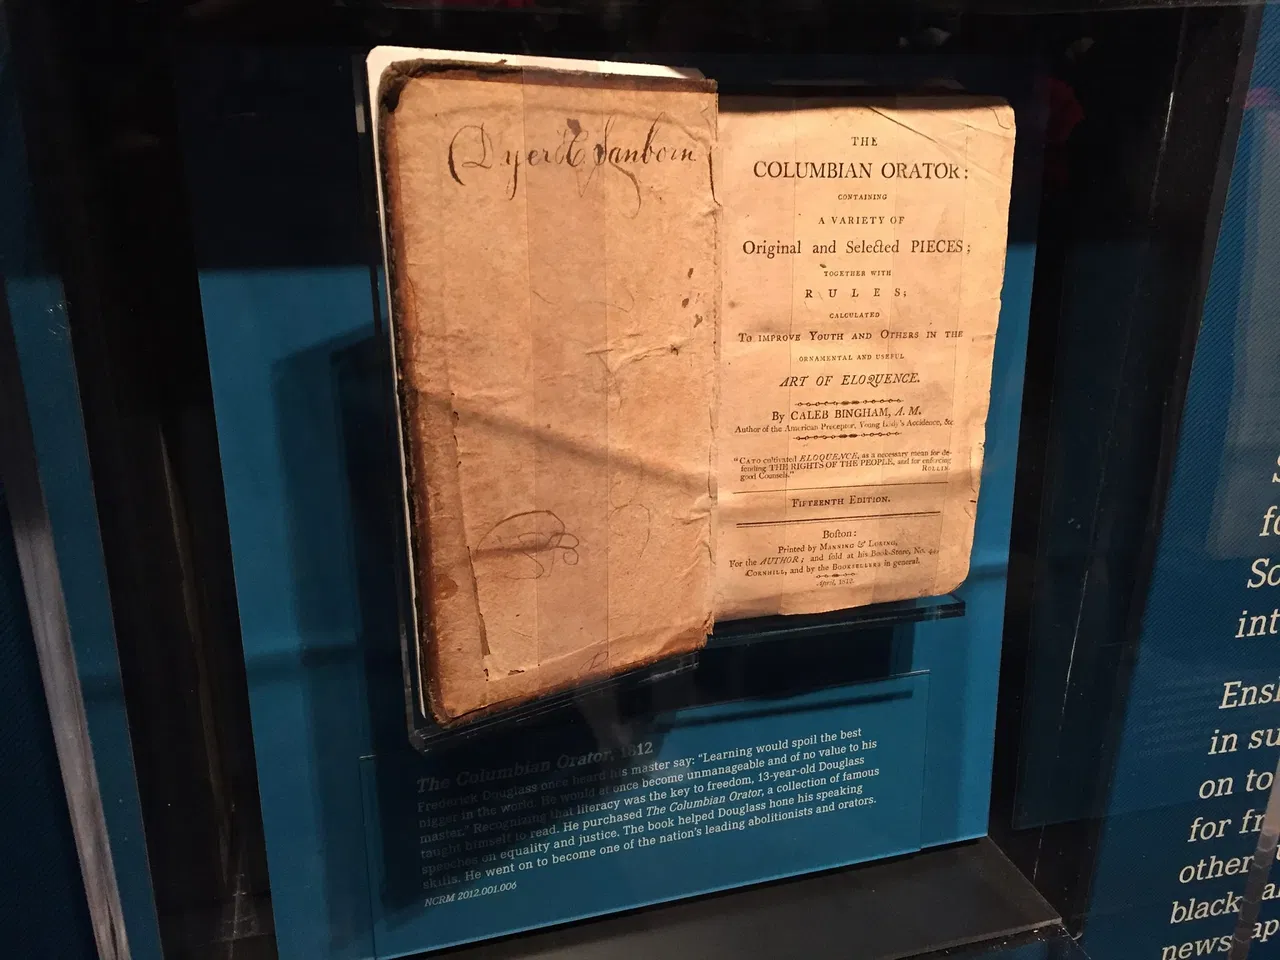 Dyer H Sanborn
THE
COLUMBIAN ORATOR:
CONTAINING
A VARIETY OF
Original and Selected PIECES;
TOGETHER WITH
RULES;
CALCULATED
To improve Youth and Others in the
ORNAMENTAL AND USEFUL
ART OF ELOQUENCE.
By CALEB BINGHAM, A. M.
Author of the American Preceptor, Young Lady's Accidence, &c
"Cato cultivated ELOQUENCE, as a necessary mean for de-
fending THE RIGHTS OF THE PEOPLE, and for enforcing
good Counsels."
Rollin.
Fifteenth Edition.
Boston:
Printed by Manning & Loring,
For the AUTHOR; and sold at his Book-Store, No. 44,
Cornhill, and by the Booksellers in general.
April, 1812.
The Columbian Orator, 1812
Frederick Douglass once heard his master say: "Learning would spoil the best
nigger in the world. He would at once become unmanageable and of no value to his
master." Recognizing that literacy was the key to freedom, 13-year-old Douglass
taught himself to read. He purchased The Columbian Orator, a collection of famous
speeches on equality and justice. The book helped Douglass hone his speaking
skills. He went on to become one of the nation's leading abolitionists and orators.
NCRM 2012.001.006
in su
on to
for fr
other
black
news